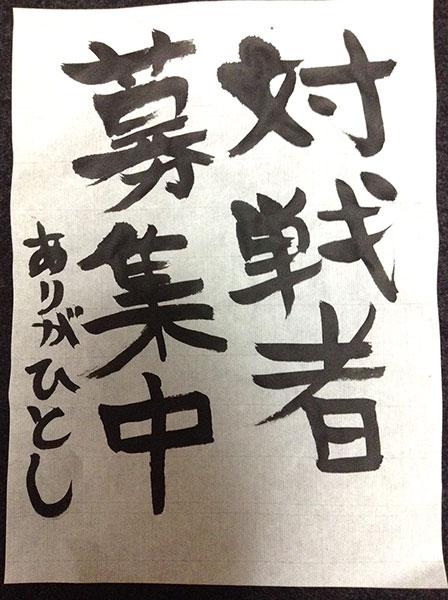 対戦者
募集中
ありがひとし